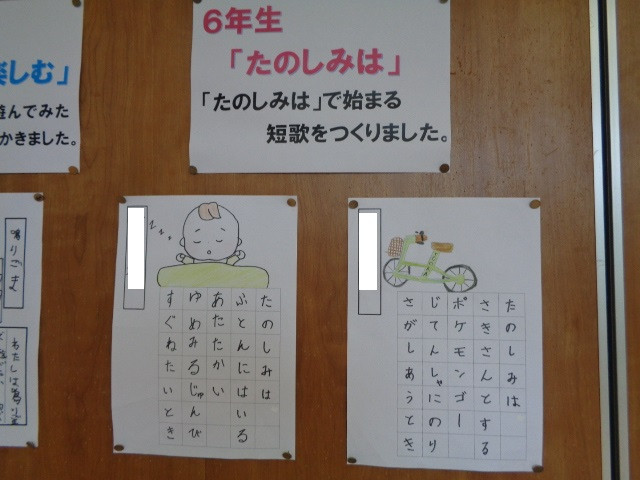 楽しむ」
遊んでみた
かきました。
6年生
「たのしみは」
「たのしみは」で始まる
短歌をつくりました。
たのしみは
ふとんにはいる
あたたかい
ゆめみるじゅんび
すぐねたいとき
たのしみは
さきさんとする
ポケモンゴー
じてんしゃにのり
さがしあうとき